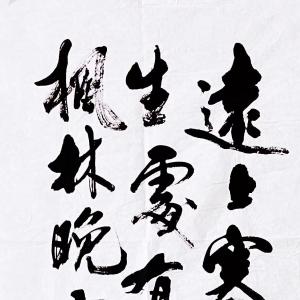 遠上寒
生處有
楓林晚